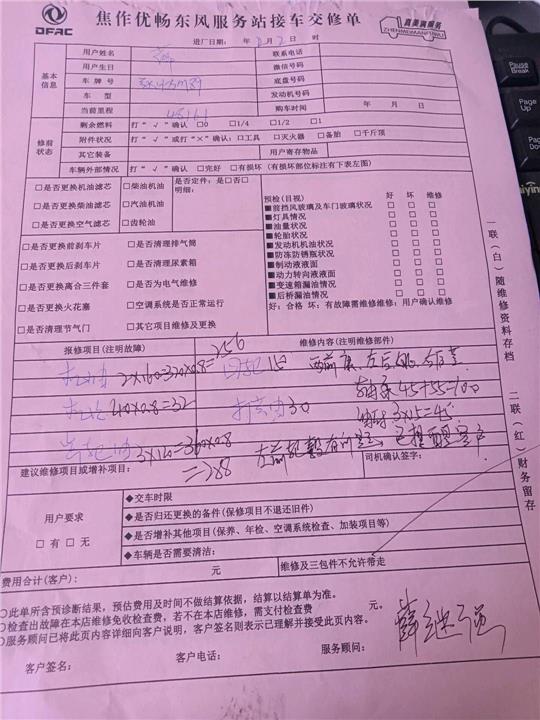 DFAC
焦作优畅东风服务站接车交修单
真美满服务
ZHENMEIMANFUWU
进厂日期: 年 月 2 日 时
基本信息
用户姓名 联系电话
用户生日 微信号码
车牌号 底盘号码
车型 发动机号码
当前里程 购车时间 年 月 日
修前状态
剩余燃料 打“√”确认 □0 □1/4 □1/2 □1
附件状况 打“√”或打“×”确认:□工具 □灭火器 □备胎 □千斤顶
其它装备 用户寄存物品
车辆外部情况 打“√”确认 □完好 □有损坏(有损坏部位标注有下表左图)
□是否更换机油滤芯 □柴油机油 是否定件:是□否□
明细:
□是否更换柴油滤芯 □汽油机油
□是否更换空气滤芯 □齿轮油
□是否更换前刹车片 □是否清理排气筒
□是否更换后刹车片 □是否清理尿素箱
□是否更换离合三件套 □是否为电气维修
□是否更换火花塞 □空调系统是否正常运行
□是否清理节气门 □其它项目维修及更换
预检(目视) 好 坏 维修
■前挡风玻璃及车门玻璃状况 □ □ □
■灯具情况 □ □ □
■油量状况 □ □ □
■轮胎状况 □ □ □
■发动机机油状况 □ □ □
■防冻防锈瓶状况 □ □ □
■制动液液面 □ □ □
■动力转向液液面 □ □ □
■变速箱漏油情况 □ □ □
■后桥漏油情况 □ □ □
好:合格 坏:有故障需维修维修:用户确认维修
报修项目(注明故障) 维修内容(注明维修部件)
2×160=320×0.8=256
45+55=100
40×0.8=32 30
3×15=45
3×120=360×0.8
=288
建议维修项目或增补项目: 司机确认签字:
用户要求
□有 □无
◆交车时限
◆是否归还更换的备件(保修项目不退还旧件)
◆是否增补其他项目(保养、年检、空调系统检查、加装项目等)
◆车辆是否需要清洁:
费用合计(客户): 元 维修及三包件不允许带走
○此单所含预诊断结果,预估费用及时间不做结算依据,结算以结算单为准。
○检查出故障在本店维修免收检查费,若不在本店维修,需支付检查费 元。
○服务顾问已将此页内容详细向客户说明,客户签名则表示已理解并接受此页内容。
客户签名: 客户电话: 服务顾问: 薛继强
一联(白)随维修资料存档
二联(红)财务留存
Pause
Break
Page
Up
Page